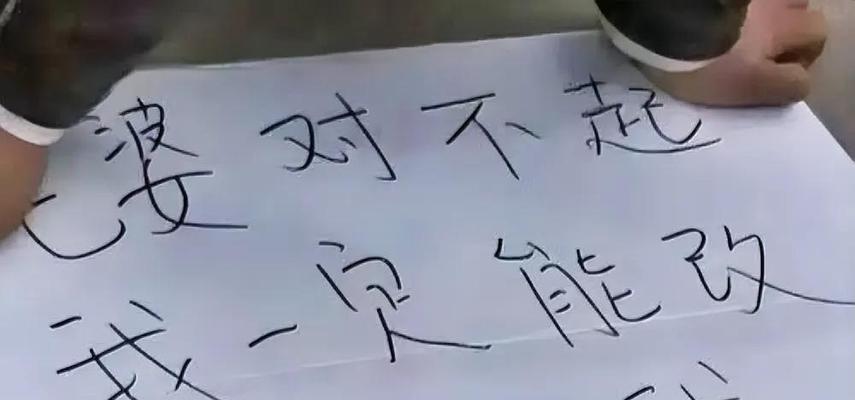 老婆对不起
我一定能改